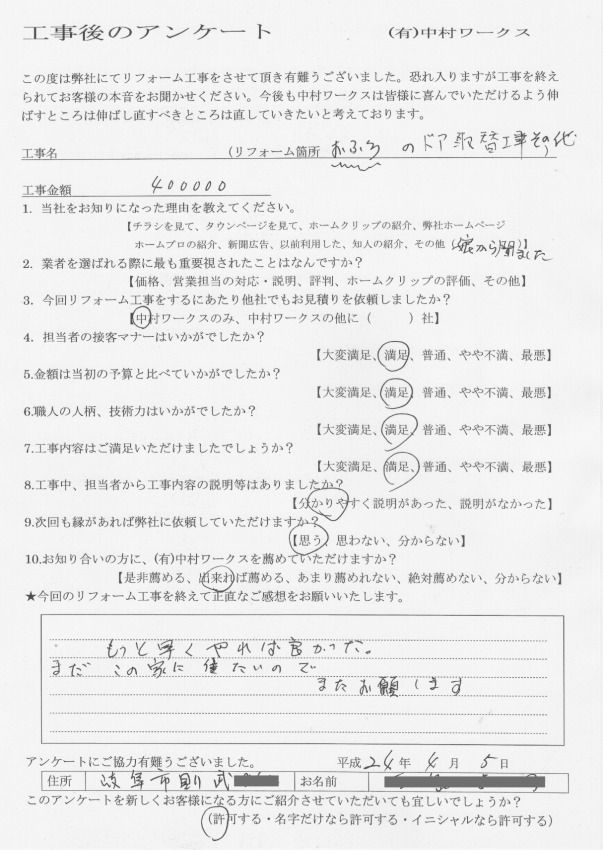 工事後のアンケート (有)中村ワークス
この度は弊社にてリフォーム工事をさせて頂き有難うございました。恐れ入りますが工事を終え
られてお客様の本音をお聞かせください。今後も中村ワークスは皆様に喜んでいただけるよう伸
ばすところは伸ばし直すべきところは直していきたいと考えております。
工事名 (リフォーム箇所 おふろ のドア取替工事その他
工事金額 400000
1. 当社をお知りになった理由を教えてください。
【チラシを見て、タウンページを見て、ホームクリップの紹介、弊社ホームページ
ホームプロの紹介、新聞広告、以前利用した、知人の紹介、その他(娘から聞きました)】
2. 業者を選ばれる際に最も重要視されたことはなんですか?
【価格、営業担当の対応・説明、評判、ホームクリップの評価、その他】
3. 今回リフォーム工事をするにあたり他社でもお見積りを依頼しましたか?
【中村ワークスのみ、中村ワークスの他に( )社】
4. 担当者の接客マナーはいかがでしたか?
【大変満足、満足、普通、やや不満、最悪】
5.金額は当初の予算と比べていかがでしたか?
【大変満足、満足、普通、やや不満、最悪】
6.職人の人柄、技術力はいかがでしたか?
【大変満足、満足、普通、やや不満、最悪】
7.工事内容はご満足いただけましたでしょうか?
【大変満足、満足、普通、やや不満、最悪】
8.工事中、担当者から工事内容の説明等はありましたか?
【分かりやすく説明があった、説明がなかった】
9.次回も縁があれば弊社に依頼していただけますか?
【思う、思わない、分からない】
10.お知り合いの方に、(有)中村ワークスを薦めていただけますか?
【是非薦める、出来れば薦める、あまり薦めれない、絶対薦めない、分からない】
★今回のリフォーム工事を終えて正直なご感想をお願いいたします。
もっと早くやれば良かった。
まだこの家に住たいので
またお願いします
アンケートにご協力有難うございました。 平成24年4月5日
住所 岐阜市則武 お名前
このアンケートを新しくお客様になる方にご紹介させていただいても宜しいでしょうか?
(許可する・名字だけなら許可する・イニシャルなら許可する)